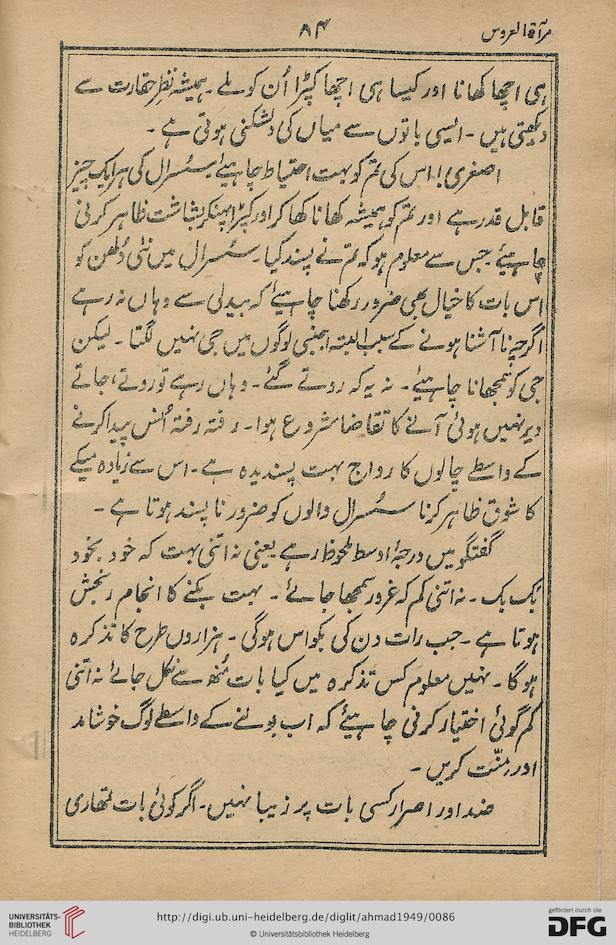 مرآۃ العروس
۸۴
ہی اچھا کھانا اور کیسا ہی اچھا کپڑا اُن کو ملے ۔ ہمیشہ نظرِ حقارت سے
دیکھتی ہیں ۔ ایسی باتوں سے میاں کی دلشکنی ہوتی ہے ۔
اصغری! اس کی تم کو بہت احتیاط چاہیئے سسُرال کی ہر ایک چیز
قابل قدر ہے اور تم کو ہمیشہ کھانا کھا کر اور کپڑا پہنکر بشاشت ظاہر کرنی
چاہیئے جس سے معلوم ہو کہ تم نے پسند کیا ۔ سسُرال میں نئی دُلھن کو
اس بات کا خیال بھی ضرور رکھنا چاہیئے کہ بیدلی سے وہاں نہ رہے
اگرچہ نا آشنا ہونے کے سبب البتہ اجنبی لوگوں میں جی نہیں لگتا ۔ لیکن
جی کو سمجھانا چاہیئے ۔ نہ یہ کہ روتے گئے ۔ وہاں رہے تو روتے، جاتے
دیر نہیں ہوئی آنے کا تقاضا شروع ہوا ۔ رفتہ رفتہ اُنس پیدا کرنے
کے واسطے چالوں کا رواج بہت پسندیدہ ہے ۔ اس سے زیادہ میکے
کا شوق ظاہر کرنا سسُرال والوں کو ضرور ناپسند ہوتا ہے ۔
گفتگو میں درجۂ اوسط ملحوظ رہے یعنی نہ اتنی بہت کہ خود بخود
بک بک ۔ نہ اتنی کم کہ غرور سمجھا جائے ۔ بہت بکنے کا انجام رنجش
ہوتا ہے ۔ جب رات دن کی بکواس ہوگی ۔ ہزاروں طرح کا تذکرہ
ہوگا ۔ نہیں معلوم کس تذکرہ میں کیا بات مُنھ سے نکل جائے نہ اتنی
کم گوئی اختیار کرنی چاہیئے کہ اب بولنے کے واسطے لوگ خوشامد
اور منّت کریں ۔
ضد اور اصرار کسی بات پر زیبا نہیں ۔ اگر کوئی بات تمھاری
UNIVERSITÄTS-
BIBLIOTHEK
HEIDELBERG
http://digi.ub.uni-heidelberg.de/diglit/ahmad1949/0086
© Universitätsbibliothek Heidelberg
gefördert durch die
DFG